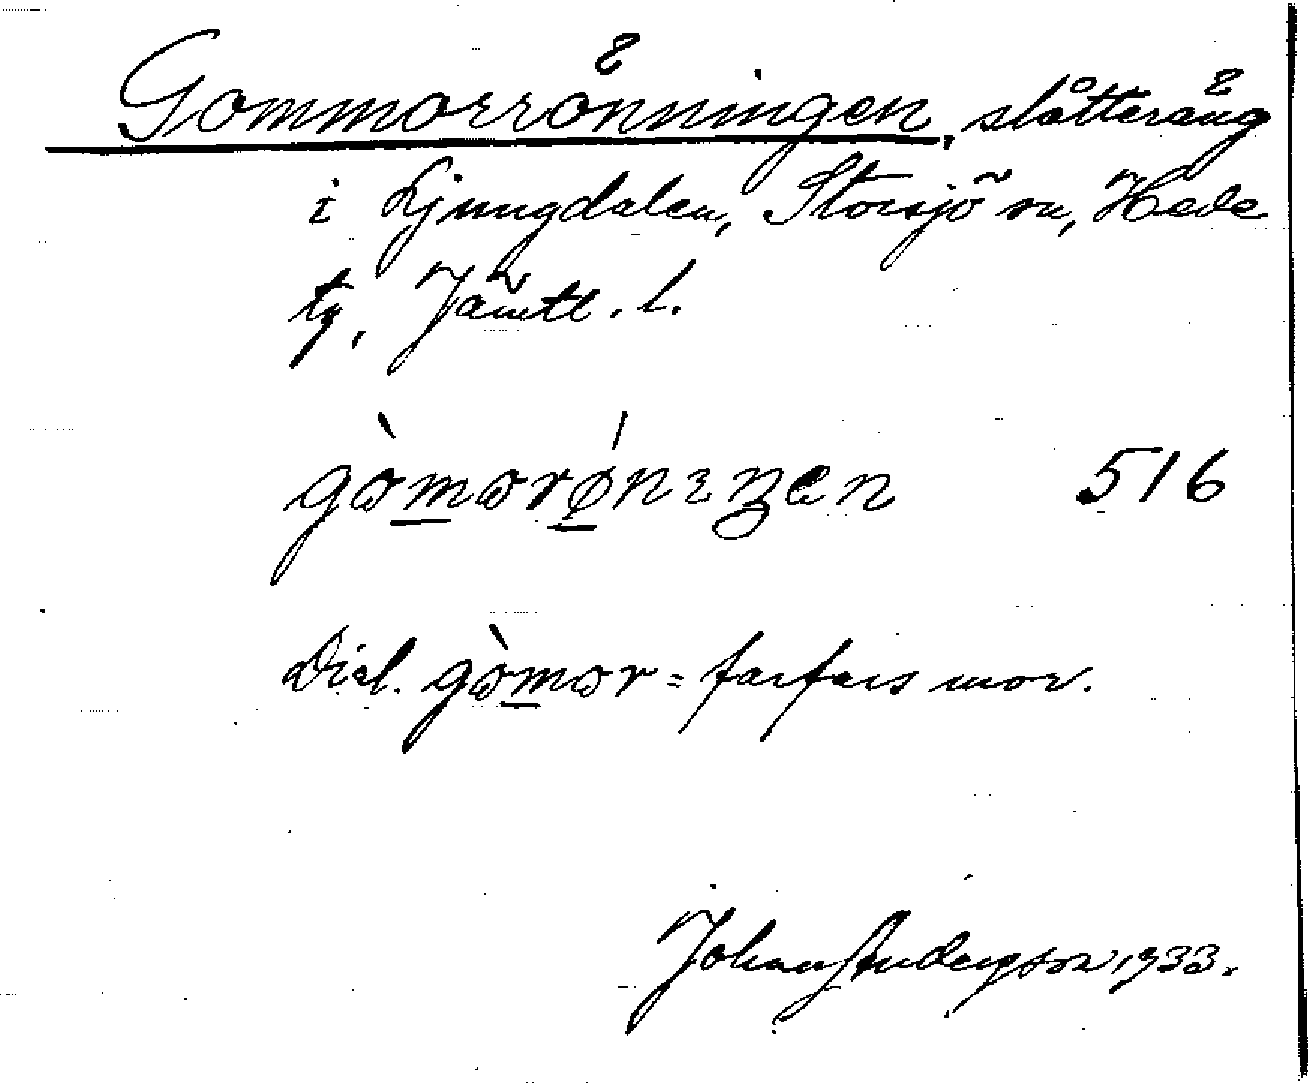 Gommorrönningen, slåtteräng
i Ljungdalen, Storsjö sn, Hede
tg, Jämtl. l.
gòmorǿnıŋen 516
Dial. gòmor = farfars mor.
Johan Anderszon 1933.